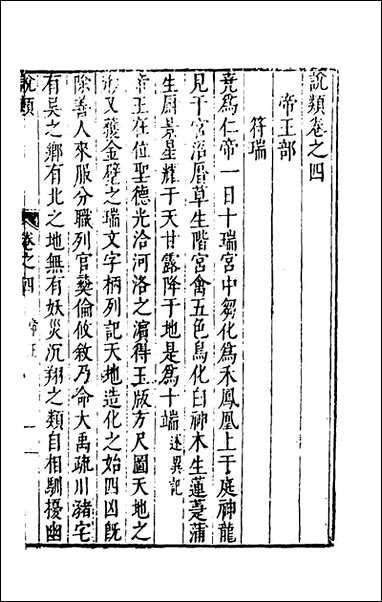 說類卷之四
帝王部
符瑞
堯爲仁帝一日十瑞宮中芻化爲禾鳳凰上于庭神龍
見于宮沼曆草生階宮禽五色烏化白神木生蓮萐蒲
生厨景星耀于天甘露降于地是爲十端述異記
帝王在位聖德光洽河洛之濵得玉版方尺圖天地之
形又獲金璧之瑞文字柄列記天地造化之始四凶旣
除善人來服分職列官彛倫攸敘乃命大禹疏川瀦宅
有吴之鄉有北之地無有妖災沉翔之類自相馴擾幽
說類 卷之四 帝王 一